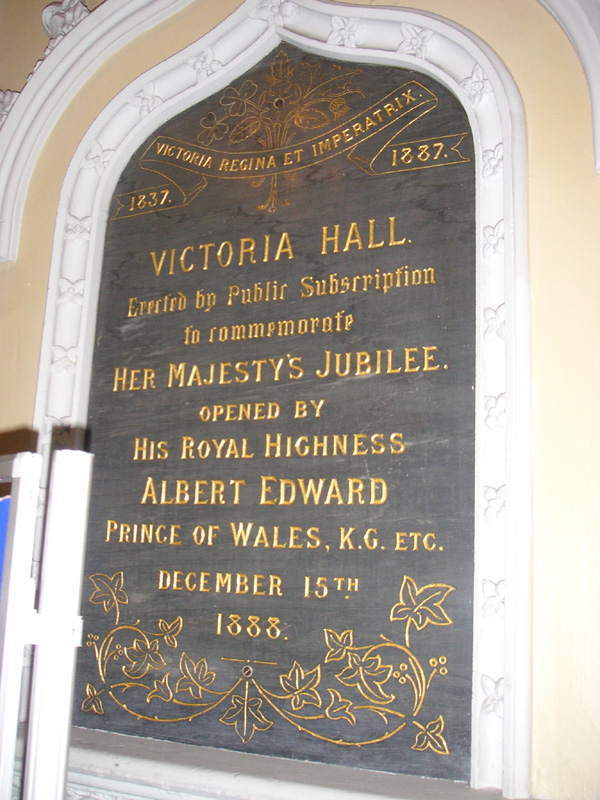 VICTORIA REGINA ET IMPERATRIX.
1837. 1887.
VICTORIA HALL.
Erected by Public Subscription
to commemorate
HER MAJESTY'S JUBILEE.
OPENED BY
HIS ROYAL HIGHNESS
ALBERT EDWARD
PRINCE OF WALES, K.G. ETC.
DECEMBER 15TH
1888.